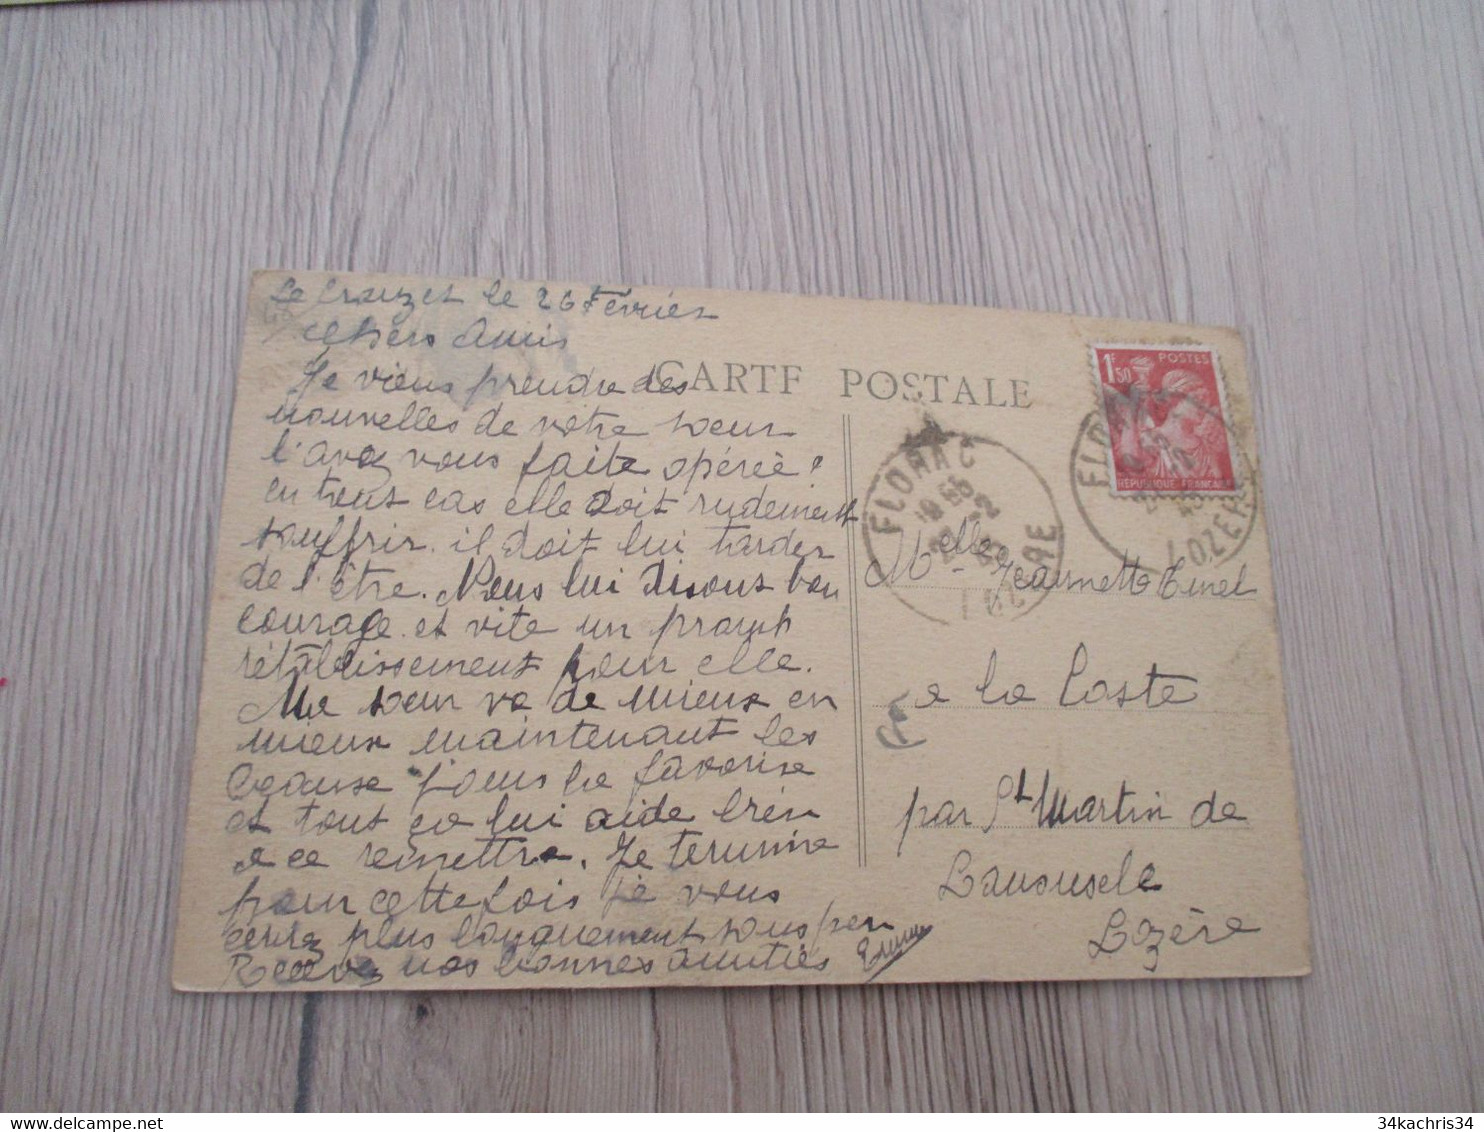 Le Crouzet le 26 Février
Chers Amis
Je viens prendre des
nouvelles de votre soeur
l'avez vous faite opérée?
en tous cas elle doit rudement
souffrir. il doit lui tarder
de l'être. Nous lui disons bon
courage et vite un prompt
rétablissement pour elle.
Ma soeur va de mieux en
mieux maintenant les
beause jours la favorise
et tout ça lui aide bien
a ce remettre. Je termine
pour cette fois je vous
cerirez plus longuement sous peu
Recevez nos bonnes amitiés
CARTE POSTALE
1F50 POSTES
RÉPUBLIQUE FRANÇAISE
FLORAC
LOZERE
FLORAC
LOZERE
Melle Jeannette Tinel
a la Coste
par St Martin de
Lansuscle
Lozère
34kachris34